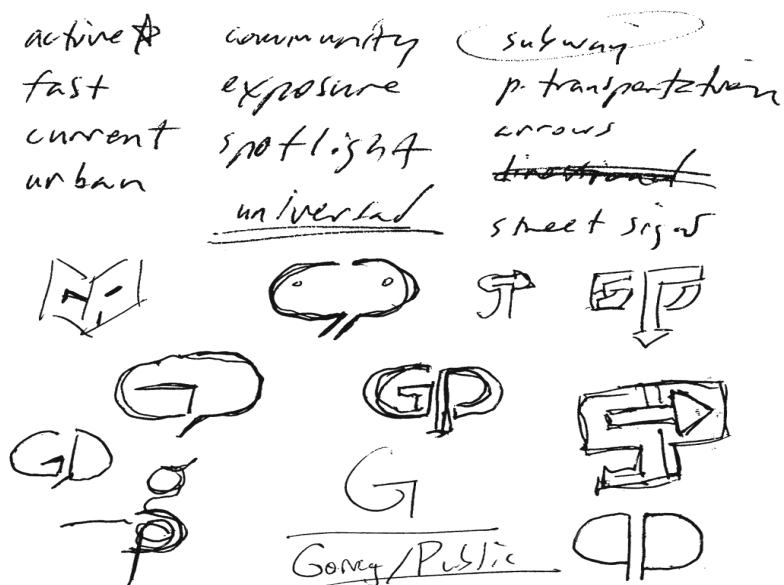 active
fast
current
urban
community
exposure
spotlight
universal
subway
p. transportation
arrows
directional
street signs
GP
GP
G
GP
GP
gp
G
Going/Public